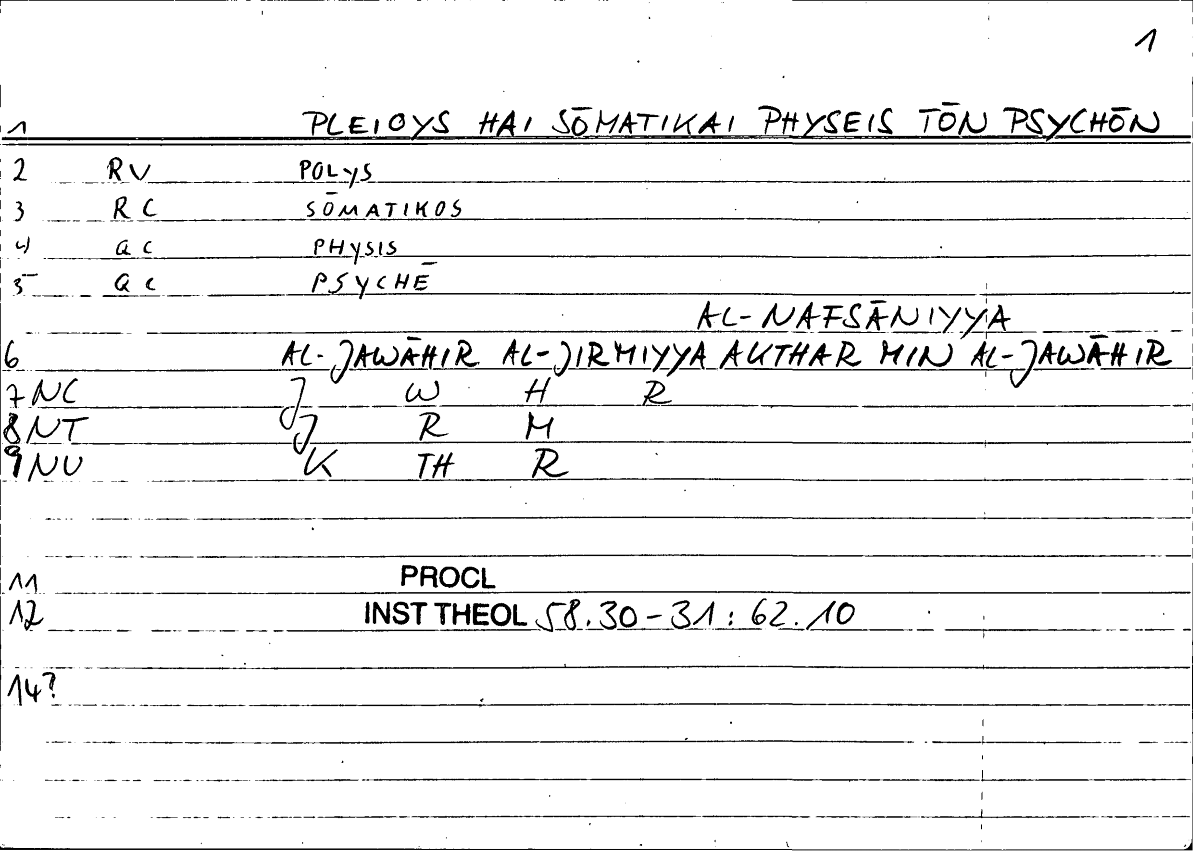 1
1 PLEIOYS HAI SŌMATIKAI PHYSEIS TŌN PSYCHŌN
2 RV POLYS
3 RC SŌMATIKOS
4 QC PHYSIS
5 QC PSYCHĒ
AL-NAFSĀNIYYA
6 AL-JAWĀHIR AL-JIRMIYYA AKTHAR MIN AL-JAWĀHIR
7 NC J W H R
8 NT J R M
9 NU K TH R
11 PROCL
12 INST THEOL 58.30-31: 62.10
14?